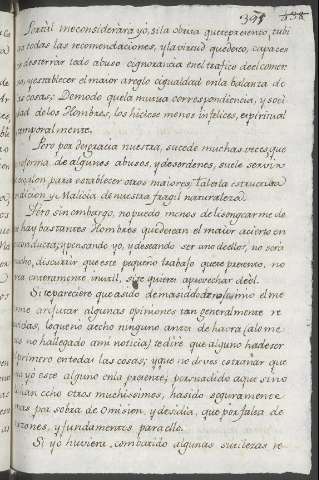 395 838
Por tal me considerára yo, si la obra que represento, tubi
todas las recomendaciones, y la virtud que deseo, capaces
desterrar todo abuso è ignorancia en el trafico de el comer
y establecer el maior areglo è igualdad en la balanza de
as cosas; De modo que la mutua correspondiencia, y socie
dad de los Hombres, los hiciese menos infelices, espiritual
temporalmente.
Pero por desgracia nuestra, sucede muchas veces, que
reforma de algunos abusos, y desordenes, suele servir
escalon para establecer otros maiores; tal es la estructura
condicion y Malicia de nuestra fragil naturaleza.
Pero sin embargo, no puedo menos de lisongearme de
hay bastantes Hombres que desean el maior acierto en
conducta; y pensando yo, y deseando ser uno de ellos, no será
mucho, discurrir que este pequeño trabajo que presento, no
enteramente inutil, si se quiere aprovechar de èl.
Si se pareciere que asido demasiado el me
arefutar algunas opiniones tan generalmente re
vidas, lo que no àecho ninguno antes de haora (alome
no hallegado ami noticia) te diré que alguno ha de ser
primero en todas las cosas; y que no debes estrañar que
yo este alguno en la presente, persuadido aque si no
han echo otros muchissimos, hasido seguramente
mas por sobra de omision, y desidia, que por falta de
razones, y fundamentos para ello.
Si yo huviera combatido algunas sutilezas re